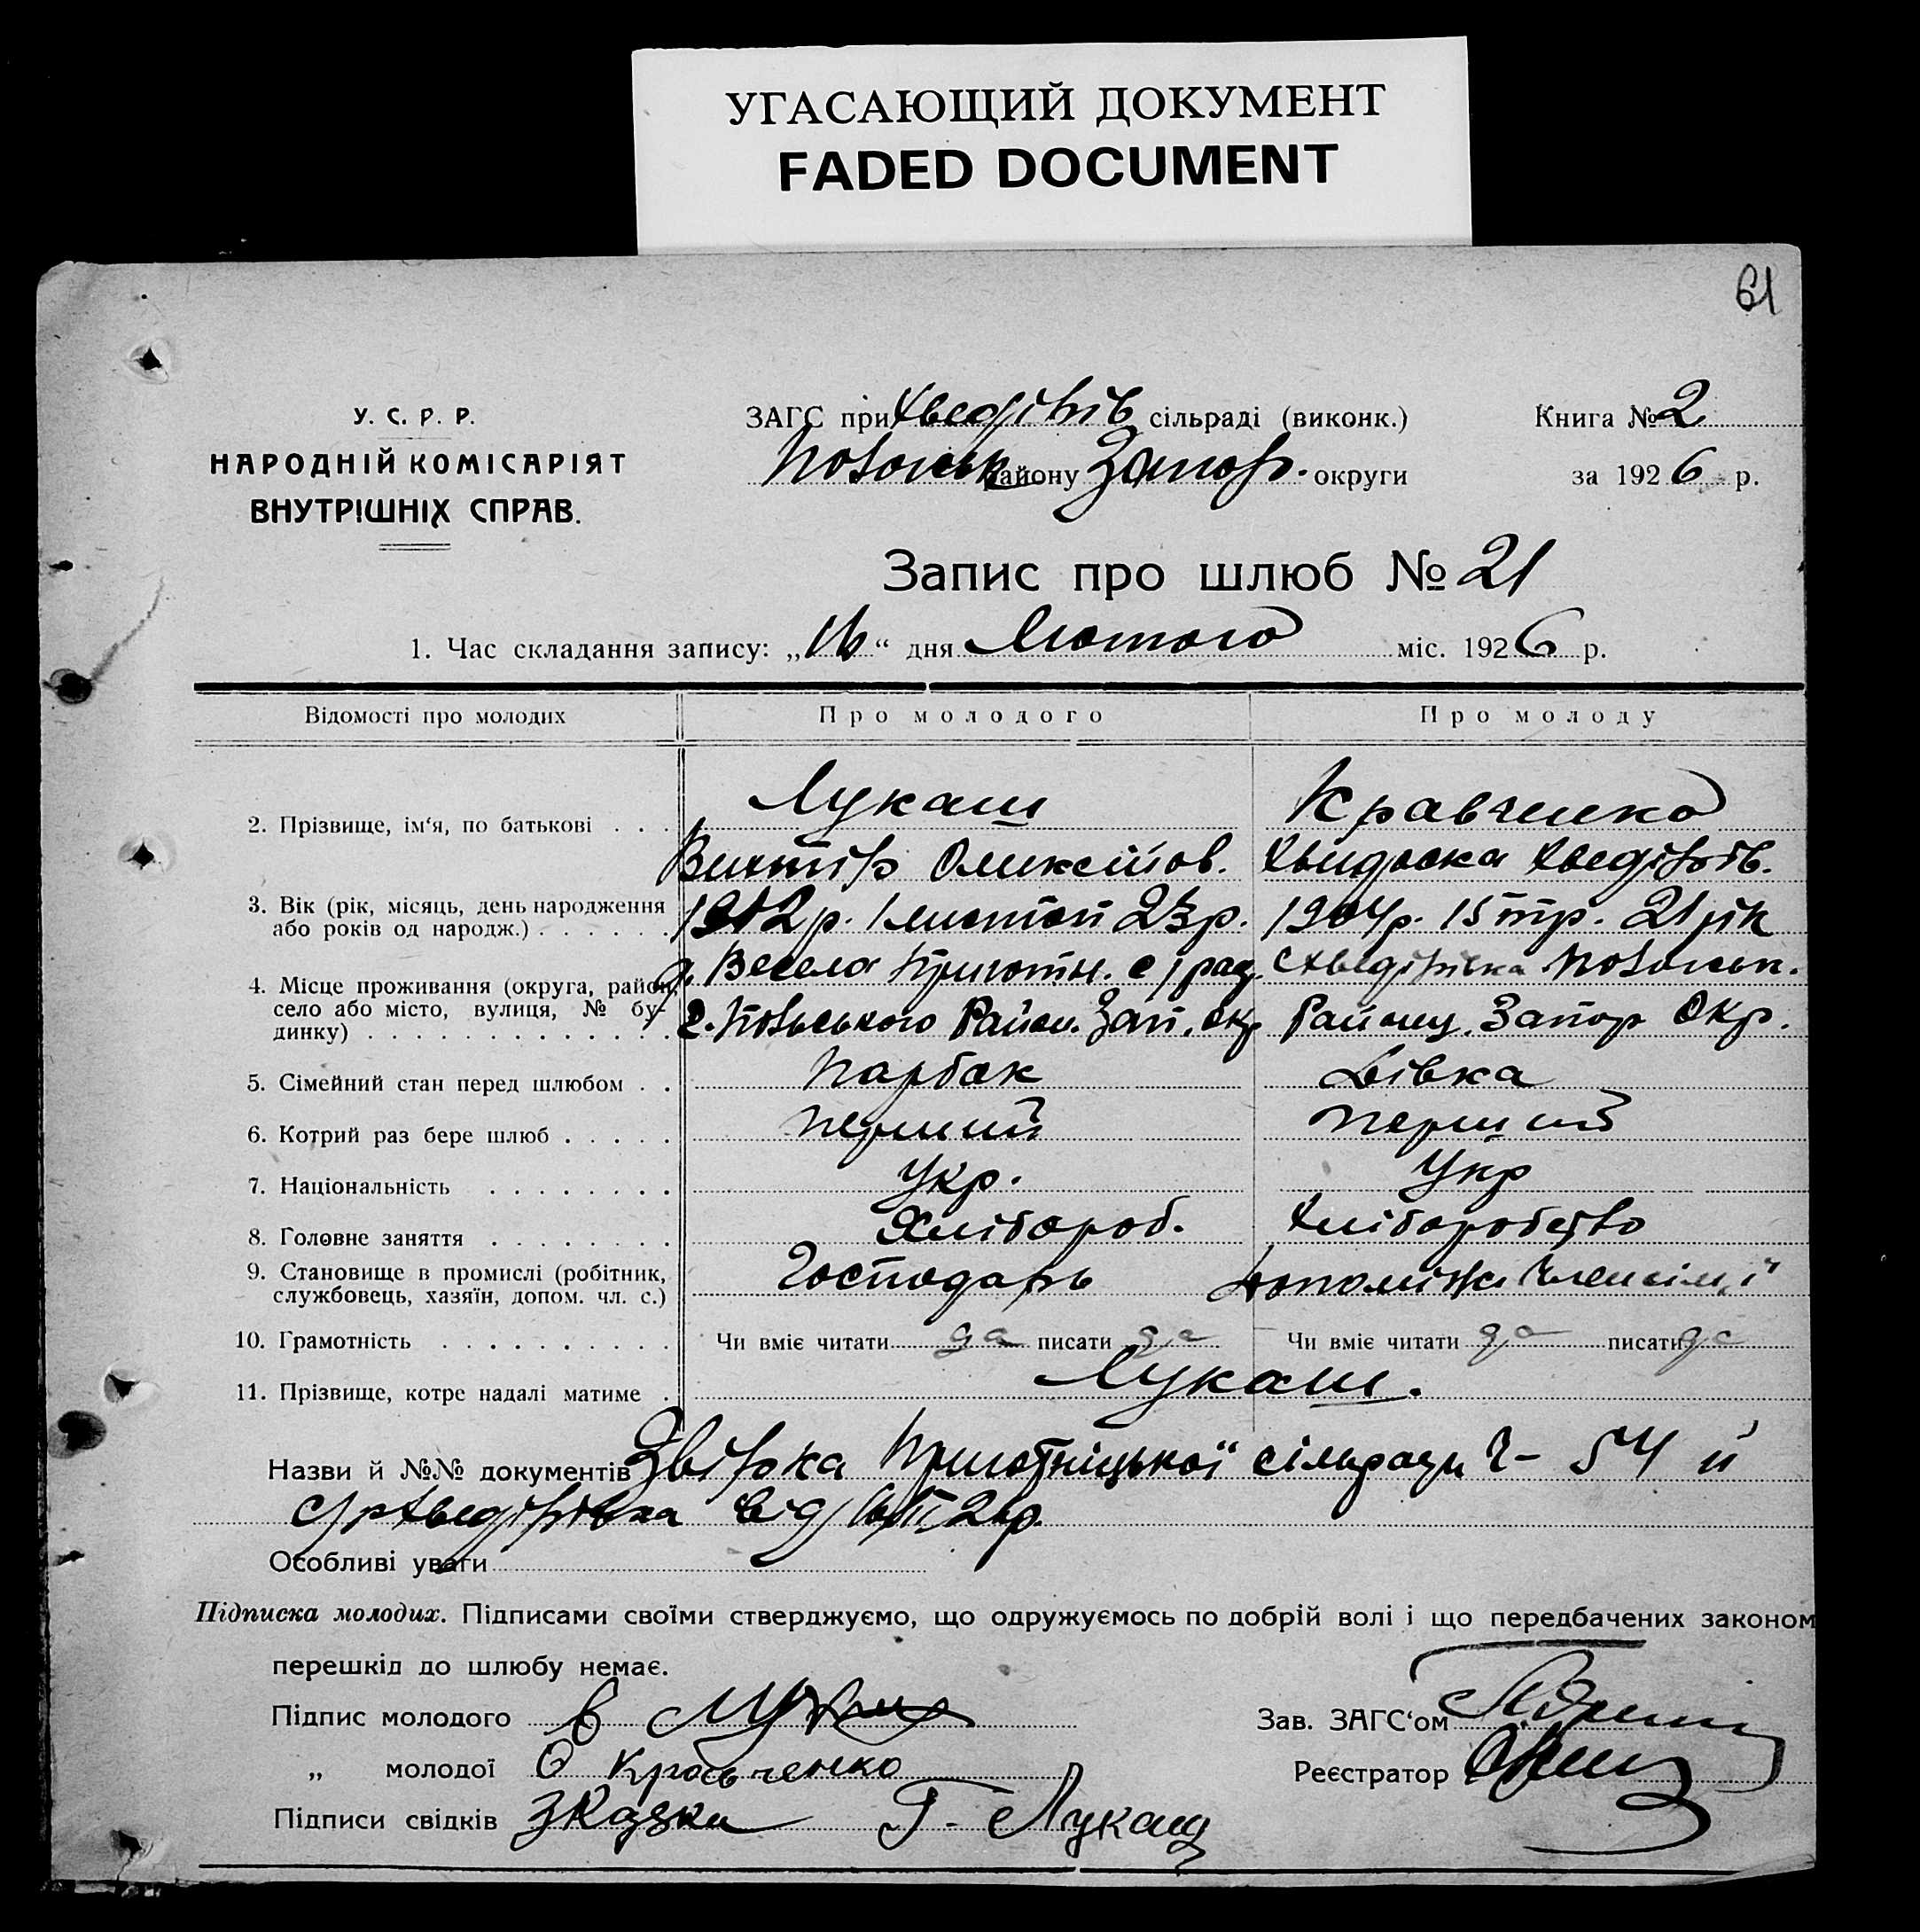 УГАСАЮЩИЙ ДОКУМЕНТ
FADED DOCUMENT
61
У. С. Р. Р.
НАРОДНІЙ КОМІСАРІЯТ
ВНУТРІШНІХ СПРАВ.
ЗАГС при Хведірів сільраді (виконк.)
району Запор. округи
Книга № 2
за 1926 р.
Запис про шлюб № 21
1. Час складання запису: „16“ дня Лютого міс. 1926 р.
Відомості про молодих Про молодого Про молоду
2. Прізвище, ім‘я, по батькові . . . Лукаш Кравченко
Вихтір Олексійов. Хведірів.
3. Вік (рік, місяць, день народження
або років од народж.) . . . . . . 1902 р. 1 23 р. 1904 р. 15 тр. 21 рік
4. Місце проживання (округа, район,
село або місто, вулиця, № бу-
динку) . . . . . . . . . . . . . .
Весела с/рад. Хведірівка
Район. Зап. окр. Району Запор Окр.
5. Сімейний стан перед шлюбом . . Парубок Дівка
6. Котрий раз бере шлюб . . . . . перший перший
7. Національність . . . . . . . . Укр. Укр
8. Головне заняття . . . . . . . . Хлібороб. Хліборобство
9. Становище в промислі (робітник,
службовець, хазяїн, допом. чл. с.)
Господарь
10. Грамотність . . . . . . . . . . Чи вміє читати да писати да Чи вміє читати да писати да
11. Прізвище, котре надалі матиме . Лукаш.
Назви й №№ документів Звірка сільради Ч– 54 й
Хведірівка від
Особливі уваги
Підписка молодих. Підписами своїми стверджуємо, що одружуємось по добрій волі і що передбачених законом
перешкід до шлюбу немає.
Підпис молодого В
„ молодої О Кравченко
Підписи свідків Г. Лукаш
Зав. ЗАГС‘ом
Реєстратор